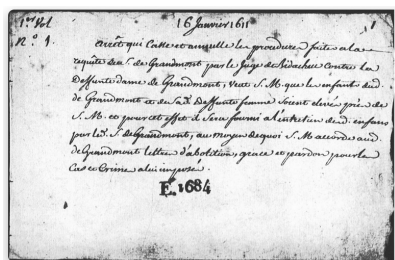 1er Vol 16 Janvier 1611 1
N.o 1.
arrêt qui Casse et annulle les procedures faites a la
requête du S. de Grandmont, par le Juge de Bidache Contre la
Deffunte dame de Grandmont, veut S. M. que les enfants dud.
de Grandmont et de sad. Deffunte femme Soient élevés près de
S. M. et pour cet effet il Sera fourni a l'entretien desd. enfans
par led. S. de Grandmont, au moyen de quoi S. M. accorde aud.
de Grandmont lettres d'abolition, grace et pardon pour le
Cas et Crime a lui imposé.
E. 1684